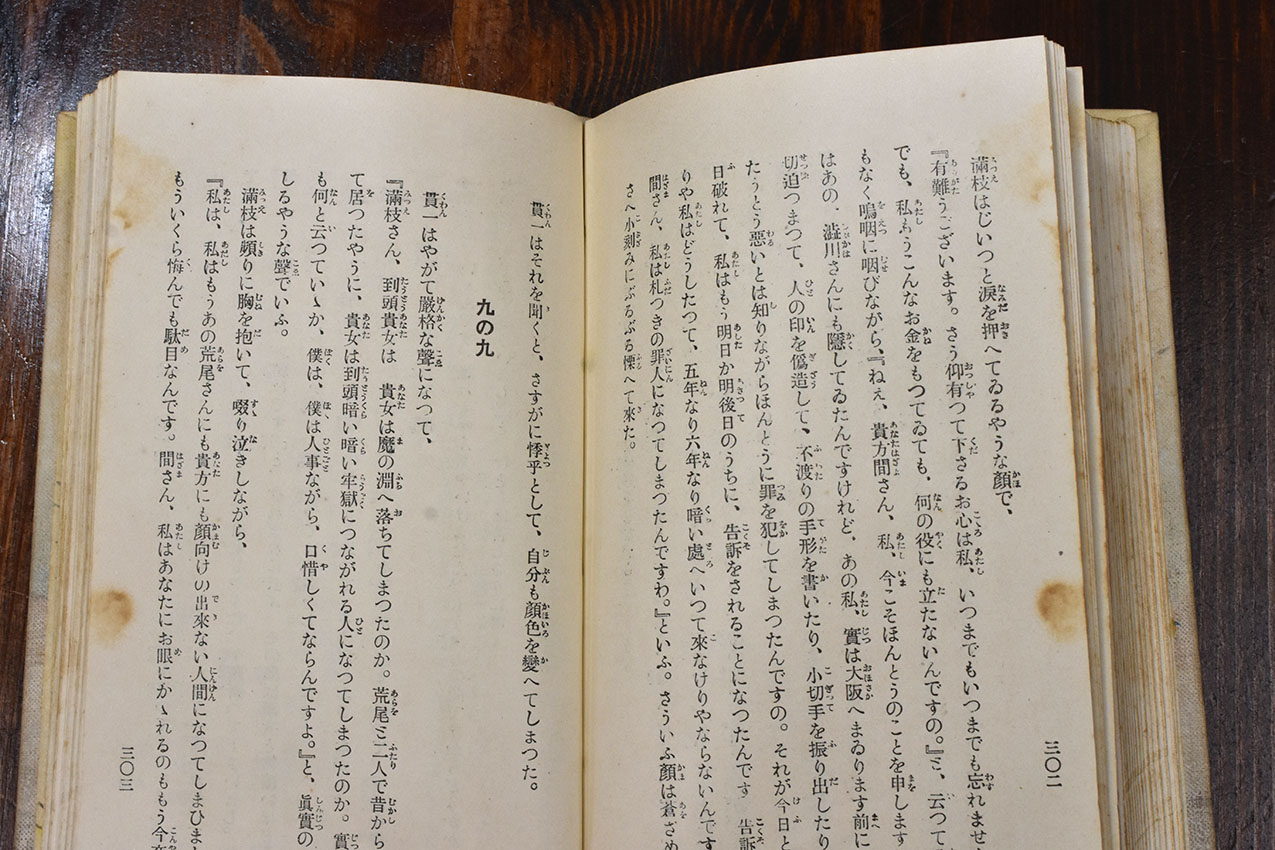 滿枝はじいつと涙を押へてゐるやうな顏で、
『有難うございます。さう仰有つて下さるお心は私、いつまでもいつまでも忘れませ
でも、私もうこんなお金をもつてゐても、何の役にも立たないんですの。』ミ、云つて
もなく嗚咽に咽びながら、『ねえ、貴方間さん、私、今こそほんとうのことを申します
はあの、澁川さんにも隱してゐたんですけれど、あの私、實は大阪へまゐります前に
切迫つまつて、人の印を僞造して、不渡りの手形を書いたり、小切手を振り出したり
たうとう惡いとは知りながらほんとうに罪を犯してしまつたんですの。それが今日と
日破れて、私はもう明日か明後日のうちに、告訴をされることになつたんです 告訴
りや私はどうしたつて、五年なり六年なり暗い處へいつて來なけりやならないんです
間さん、私は札つきの罪人になつてしまつたんですわ。』といふ。さういふ顏は蒼ざめ
さへ小刻みにぶるぶる慄へて來た。
三〇二
貫一はそれを聞くと、さすがに悸乎として、自分も顏色を變へてしまつた。
九の九
貫一はやがて嚴格な聲になつて、
『滿枝さん、到頭貴女は 貴女は魔の淵へ落ちてしまつたのか。荒尾ミ二人で昔から
て居つたやうに、貴女は到頭暗い暗い牢獄につながれる人になつてしまつたのか。實
も何と云つていゝか、僕は、僕は人事ながら、口惜しくてならんですよ。』と、眞實の
しるやうな聲でいふ。
滿枝は頻りに胸を抱いて、啜り泣きしながら、
『私は、私はもうあの荒尾さんにも貴方にも顏向けの出來ない人間になつてしまひまし
もういくら悔んでも駄目なんです。間さん、私はあなたにお眼にかゝれるのももう今
三〇三